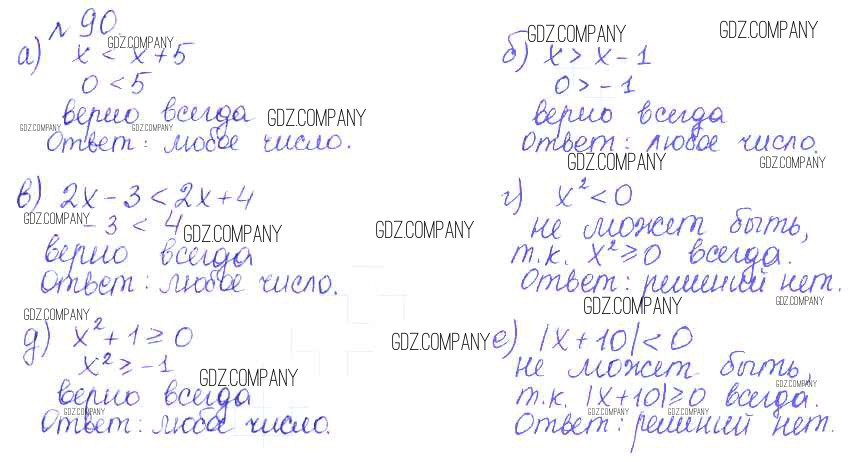 № 90.
GDZ.COMPANY
а) x < x + 5
0 < 5
верно всегда
GDZ.COMPANY
GDZ.COMPANY
GDZ.COMPANY
Ответ: любое число.
GDZ.COMPANY
GDZ.COMPANY
б) x > x - 1
0 > -1
верно всегда
Ответ: любое число.
GDZ.COMPANY
GDZ.COMPANY
в) 2x - 3 < 2x + 4
GDZ.COMPANY
- 3 < 4
GDZ.COMPANY
GDZ.COMPANY
верно всегда
Ответ: любое число.
г) x² < 0
не может быть,
т.к. x² ≥ 0 всегда.
Ответ: решений нет.
GDZ.COMPANY
GDZ.COMPANY
GDZ.COMPANY
д) x² + 1 ≥ 0
x² ≥ -1
GDZ.COMPANY
верно всегда
GDZ.COMPANY
Ответ: любое число.
GDZ.COMPANY
е) |x + 10| < 0
не может быть,
GDZ.COMPANY
т.к. |x + 10| ≥ 0 всегда.
GDZ.COMPANY
GDZ.COMPANY
Ответ: решений нет.